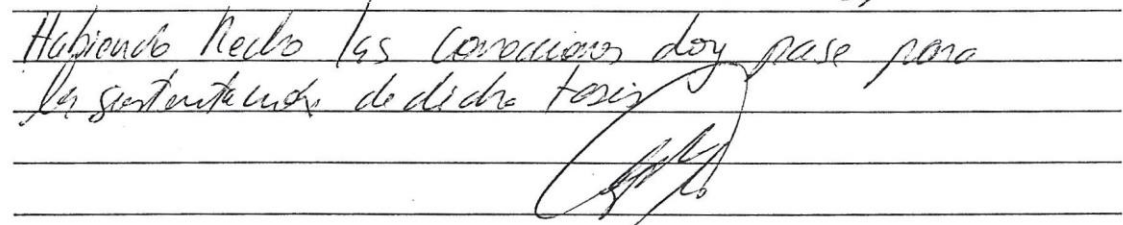 Habiendo hecho las correcciones doy pase para
la sustentación de dicha tesis